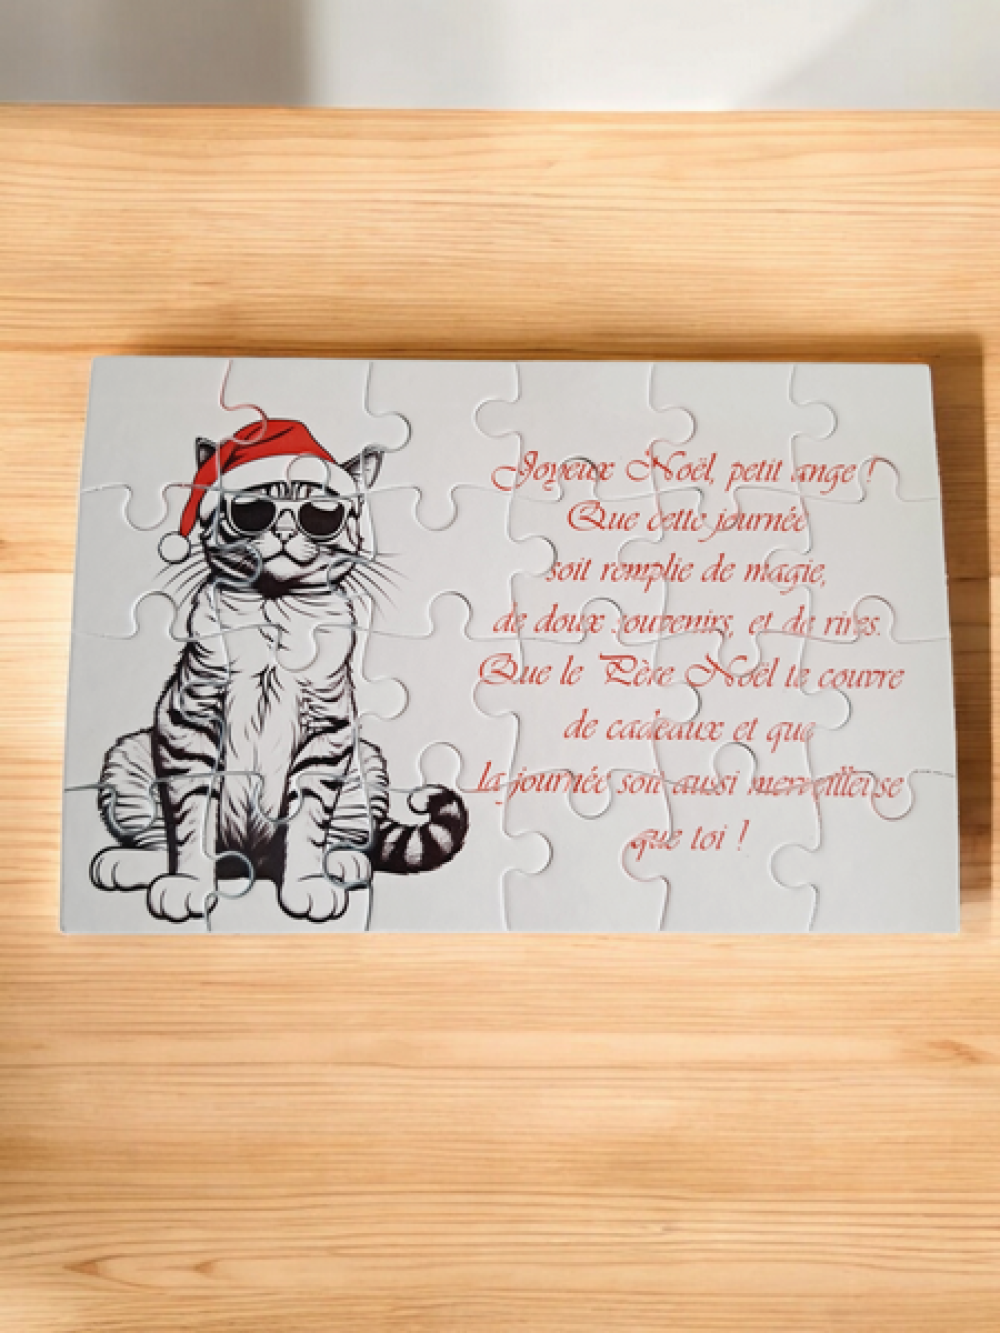 Joyeux Noël, petit ange !
Que cette journée
soit remplie de magie,
de doux souvenirs, et de rires.
Que le Père Noël te couvre
de cadeaux et que
la journée soit aussi merveilleuse
que toi !